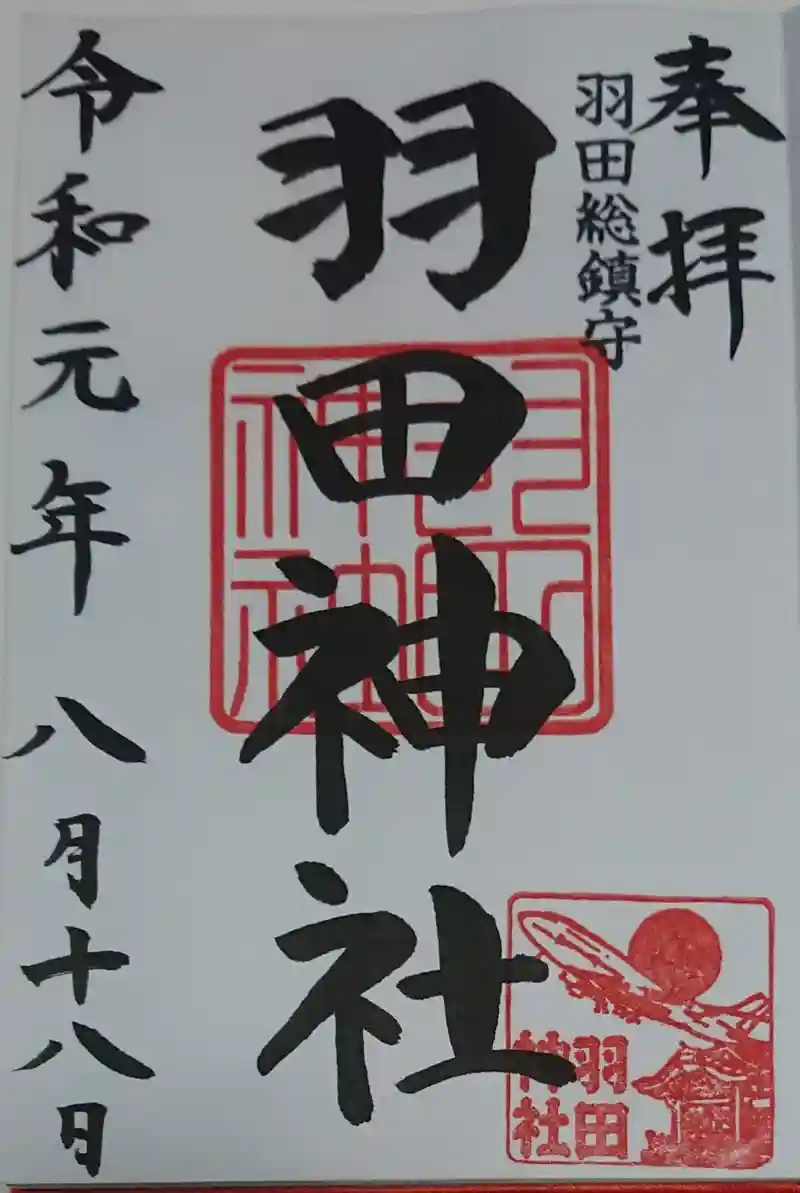 奉拝
羽田総鎮守
羽田神社
令和元年 八月十八日
羽田
神社
羽田
神社